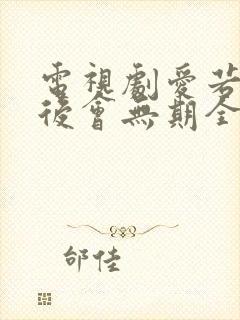 電視劇愛若
後會無期全
邰佳